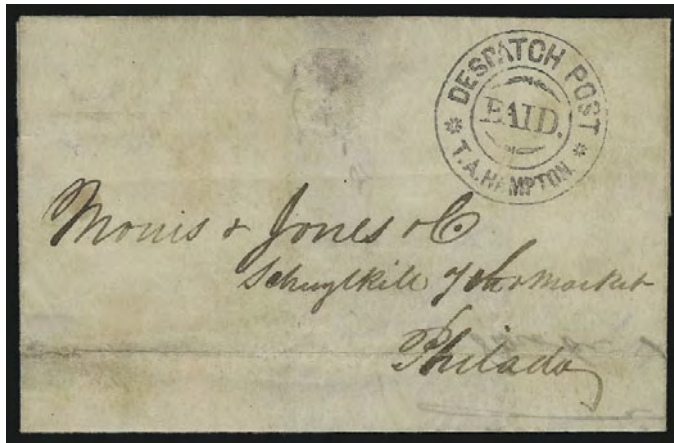 DESPATCH POST
PAID.
T.A. HAMPTON.
Morris & Jones & Co
Schuylkill 7th & Market
Philada